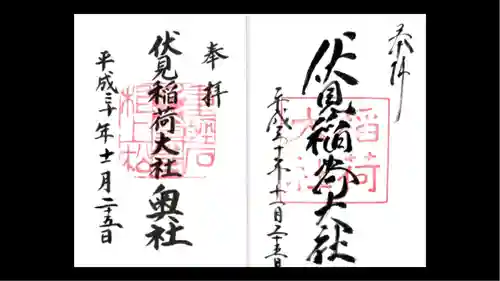 奉拝
伏見稲荷大社
平成三十年十一月二十五日
奉拝
伏見稲荷大社奥社
平成三十年十一月二十五日